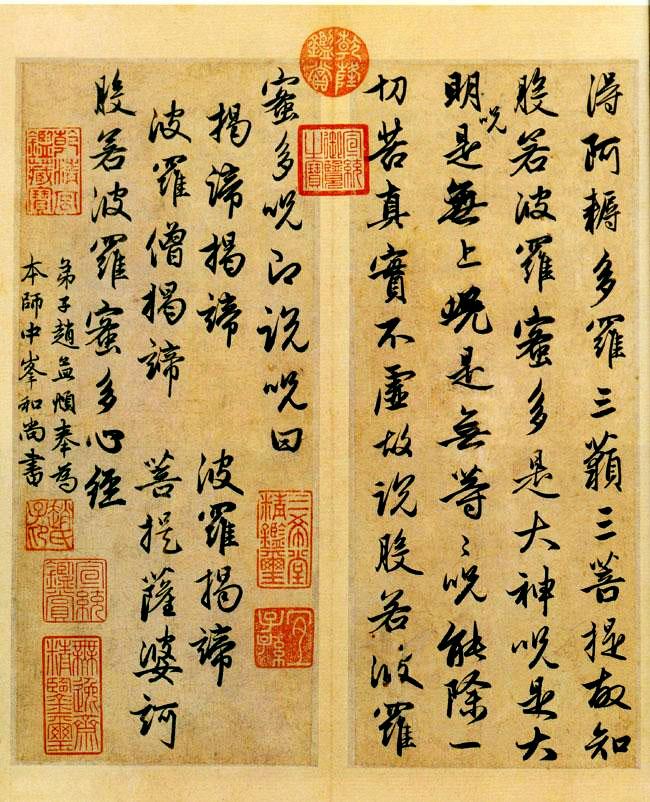 得阿耨多羅三藐三菩提故知
般若波羅蜜多是大神咒是大
明咒是無上咒是無等〻咒能除一
切苦真實不虛故說般若波羅
蜜多咒即說咒曰
揭諦揭諦 波羅揭諦
波羅僧揭諦 菩提薩婆訶
般若波羅蜜多心經
弟子趙孟頫奉為
本師中峯和尚書
乾隆鑑賞
宣統御覽之寶
三希堂精鑑璽
宜子孫
乾清宮鑑藏寶
趙氏子昂
宣統鑑賞
無逸齋精鑒璽